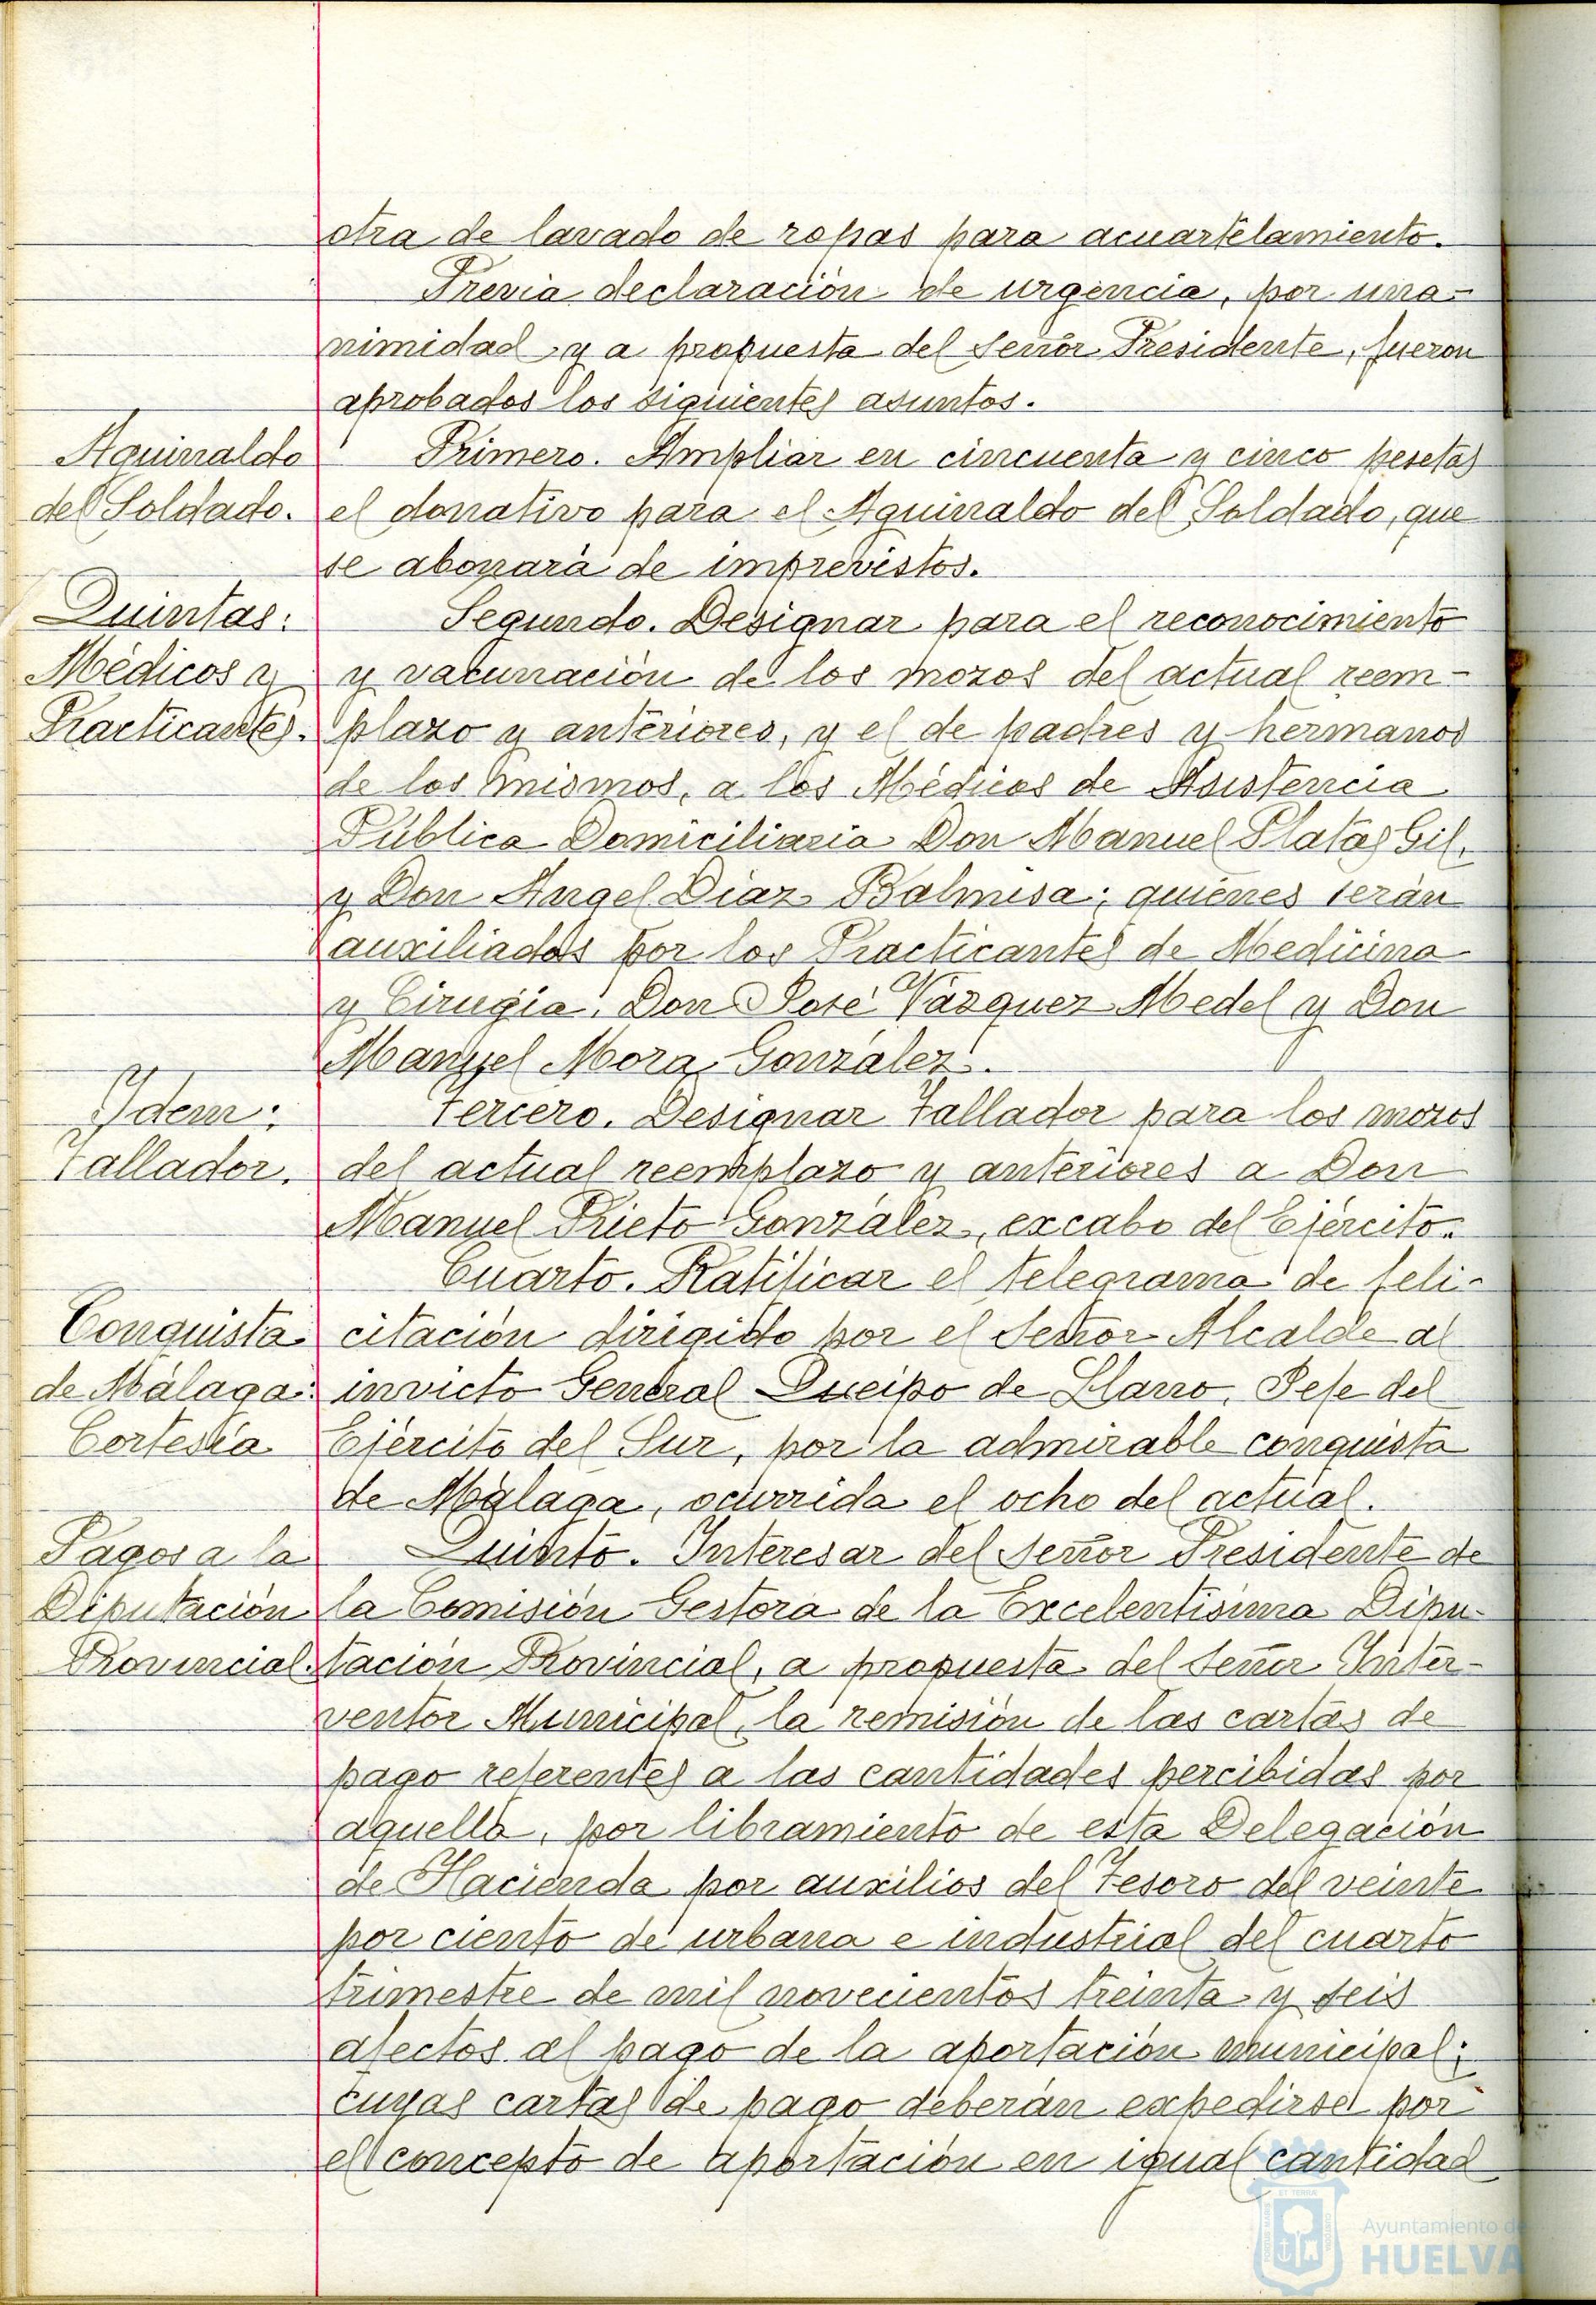 otra de lavado de ropas para acuartelamiento.
Previa declaración de urgencia, por una-
nimidad y a propuesta del Señor Presidente, fueron
aprobados los siguientes asuntos.
Aguinaldo
del Soldado.
Primero. Ampliar en cincuenta y cinco pesetas
el donativo para el Aguinaldo del Soldado, que
se abonará de imprevistos.
Quintas:
Médicos y
Practicantes.
Segundo. Designar para el reconocimiento
y vacunación de los mozos del actual reem-
plazo y anteriores, y el de padres y hermanos
de los mismos, a los Médicos de Asistencia
Pública Domiciliaria Don Manuel Platas Gil,
y Don Angel Diaz Balmisa; quienes serán
auxiliados por los Practicantes de Medicina
y Cirugía, Don José Vázquez Medel y Don
Manuel Mora González.
Idem:
Tallador.
Tercero. Designar Tallador para los mozos
del actual reemplazo y anteriores a Don
Manuel Prieto González, excabo del Ejército.
Conquista
de Málaga:
Cortesía
Cuarto. Ratificar el telegrama de feli-
citación dirigido por el Señor Alcalde al
invicto General Queipo de Llano, Jefe del
Ejército del Sur, por la admirable conquista
de Málaga, ocurrida el ocho del actual.
Pagos a la
Diputación
Provincial.
Quinto. Interesar del Señor Presidente de
la Comisión Gestora de la Excelentísima Dipu-
tación Provincial, a propuesta del Señor Inter-
ventor Municipal, la remisión de las cartas de
pago referentes a las cantidades percibidas por
aquella, por libramiento de esta Delegación
de Hacienda por auxilios del Tesoro del veinte
por ciento de urbana e industrial del cuarto
trimestre de mil novecientos treinta y seis
afectos al pago de la aportación municipal;
cuyas cartas de pago deberán expedirse por
el concepto de aportación en igual cantidad
Ayuntamiento de
HUELVA